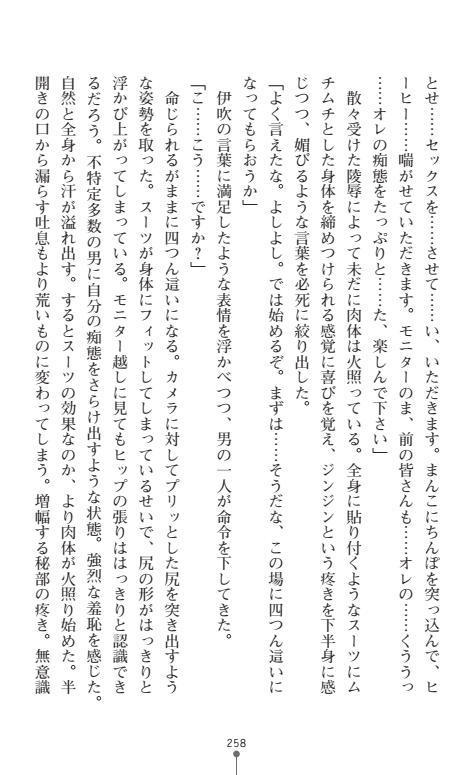 とせ……セックスを……させて……い、いただきます。まんこにちんぽを突っ込んで、ヒ
ーヒー……喘がせていただきます。モニターのま、前の皆さんも……オレの……くううっ
……オレの痴態をたっぷりと……た、楽しんで下さい」
散々受けた陵辱によって未だに肉体は火照っている。全身に貼り付くようなスーツにム
チムチとした身体を締めつけられる感覚に喜びを覚え、ジンジンという疼きを下半身に感
じつつ、媚びるような言葉を必死に絞り出した。
「よく言えたな。よしよし。では始めるぞ。まずは……そうだな、この場に四つん這いに
なってもらおうか」
伊吹の言葉に満足したような表情を浮かべつつ、男の一人が命令を下してきた。
「こ……こう……ですか？」
命じられるがままに四つん這いになる。カメラに対してプリッとした尻を突き出すよう
な姿勢を取った。スーツが身体にフィットしてしまっているせいで、尻の形がはっきりと
浮かび上がってしまっている。モニター越しに見てもヒップの張りははっきりと認識でき
るだろう。不特定多数の男に自分の痴態をさらけ出すような状態。強烈な羞恥を感じた。
自然と全身から汗が溢れ出す。するとスーツの効果なのか、より肉体が火照り始めた。半
開きの口から漏らす吐息もより荒いものに変わってしまう。増幅する秘部の疼き。無意識
258